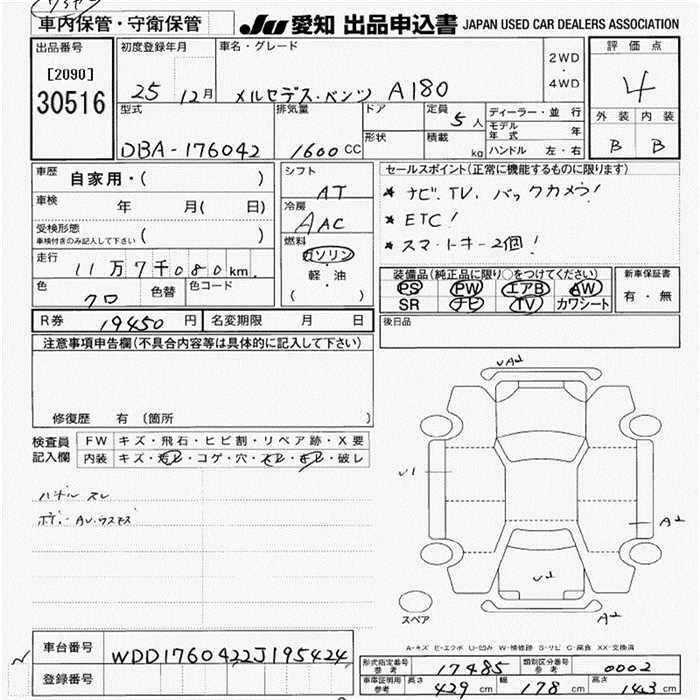 車内保管・守衛保管
JU 愛知 出品申込書 JAPAN USED CAR DEALERS ASSOCIATION
出品番号 [2090] 30516
初度登録年月 25 12月
車名・グレード メルセデス・ベンツ A180
2WD・4WD
評価点 4
外装 内装
B B
型式 DBA-176042
排気量 1600CC
ドア
形状
定員 5人
積載 kg
ディーラー・並行
モデル年式 年
ハンドル 左・右
車歴 自家用・( )
車検 年 月( 日)
受検形態 ( )
車検付きのみ記入して下さい
走行 11万7千080km
色 クロ 色替 色コード
シフト AT
冷房 AAC
燃料 ガソリン・軽油
( )
セールスポイント(正常に機能するものに限ります)
★ ナビ、TV、バックカメラ!
★ ETC!
★ スマートキー2個!
装備品(純正品に限り○をつけてください)
PS PW エアB AW
SR ナビ TV カワシート
新車保証書
有・無
R券 19450円 名変期限 月 日
後日品
注意事項申告欄(不具合内容等は具体的に記入して下さい)
修復歴 有 (箇所 )
検査員記入欄
FW キズ・飛石・ヒビ割・リペア跡・X要
内装 キズ・汚レ・コゲ・穴・スレ・キレ・破レ
ハンドル スレ
ボデーAU・ウスキズ
UA1
U1
A2
U1
A2
スペア
A-キズ E-エクボ U-凹み W-補修跡 S-サビ C-腐食 XX-交換済
車台番号 WDD1760422J195424
登録番号
形式指定番号 参考 17485 類別区分番号 参考 0002
車庫証明用 参考 長さ 429cm 幅 178cm 高さ 143cm